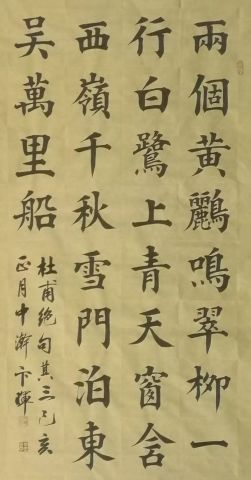 兩個黃鸝鳴翠柳一
行白鷺上青天窗含
西嶺千秋雪門泊東
吴萬里船
杜甫絕句其三己亥
正月中澣卞暉